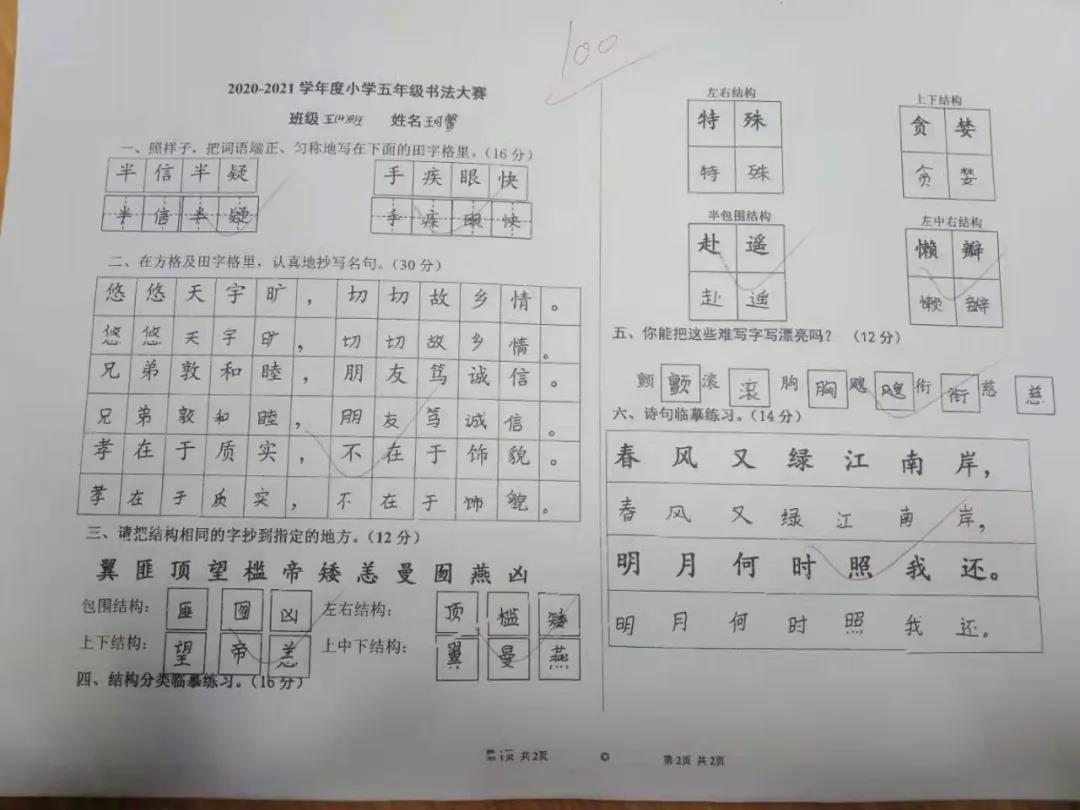 100
2020-2021 学年度小学五年级书法大赛
班级 五(4)班 姓名 王可馨
一、照样子，把词语端正、匀称地写在下面的田字格里。(16 分)
半信半疑 手疾眼快
半信半疑 手疾眼快
二、在方格及田字格里，认真地抄写名句。(30 分)
悠悠天宇旷，切切故乡情。
悠悠天宇旷，切切故乡情。
兄弟敦和睦，朋友笃诚信。
兄弟敦和睦，朋友笃诚信。
孝在于质实，不在于饰貌。
孝在于质实，不在于饰貌。
三、请把结构相同的字抄到指定的地方。(12 分)
翼匪顶望槛帝矮恙曼囫燕凶
包围结构: 匪 囫 凶 左右结构: 顶 槛 矮
上下结构: 望 帝 恙 上中下结构: 翼 曼 燕
四、结构分类临摹练习。(16 分)
第1页 共2页
左右结构 上下结构
特殊 贪婪
特殊 贪婪
半包围结构 左中右结构
赴遥 懒瓣
赴遥 懒瓣
五、你能把这些难写字写漂亮吗？ (12 分)
颤 颤 滚 滚 胸 胸 飕 飕 衔 衔 慈 慈
六、诗句临摹练习。(14 分)
春风又绿江南岸，
春风又绿江南岸，
明月何时照我还。
明月何时照我还。
第2页 共2页